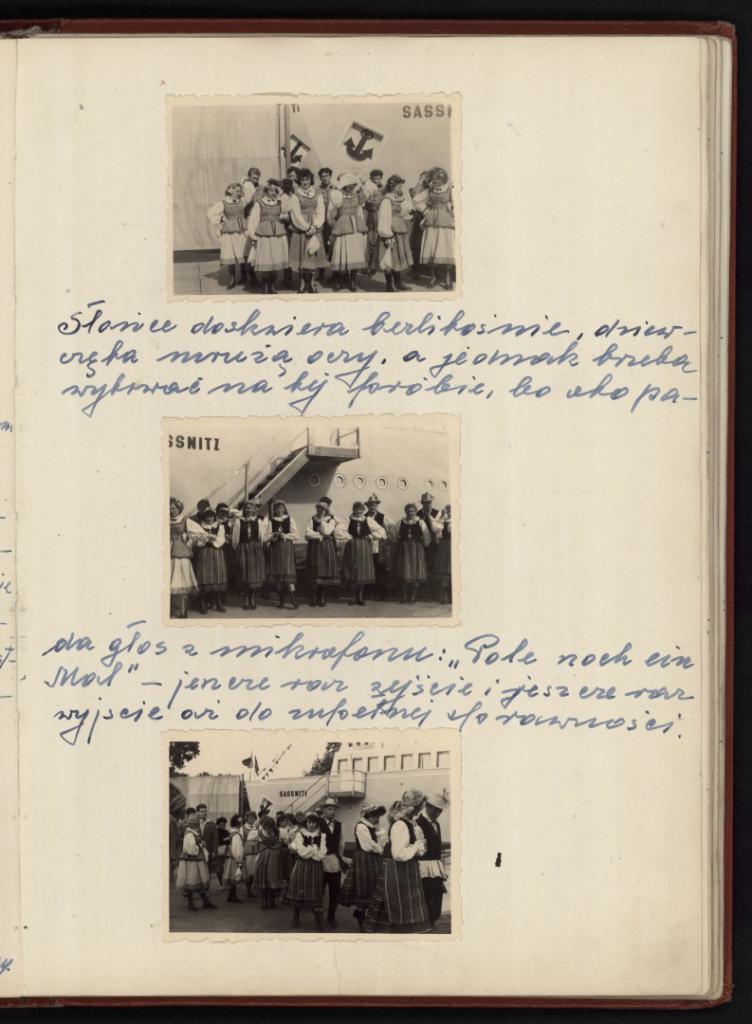 TI
SASSI
Słońce doskwiera bezlitośnie, dziew-
częta mrużą oczy, a jednak trzeba
wytrwać na tej próbie, bo oto pa-
SSNITZ
da głos z mikrofonu: „Pole noch ein
Mal" – jeszcze raz zejście i jeszcze raz
wyjście aż do zupełnej sprawności.
SASSNITZ